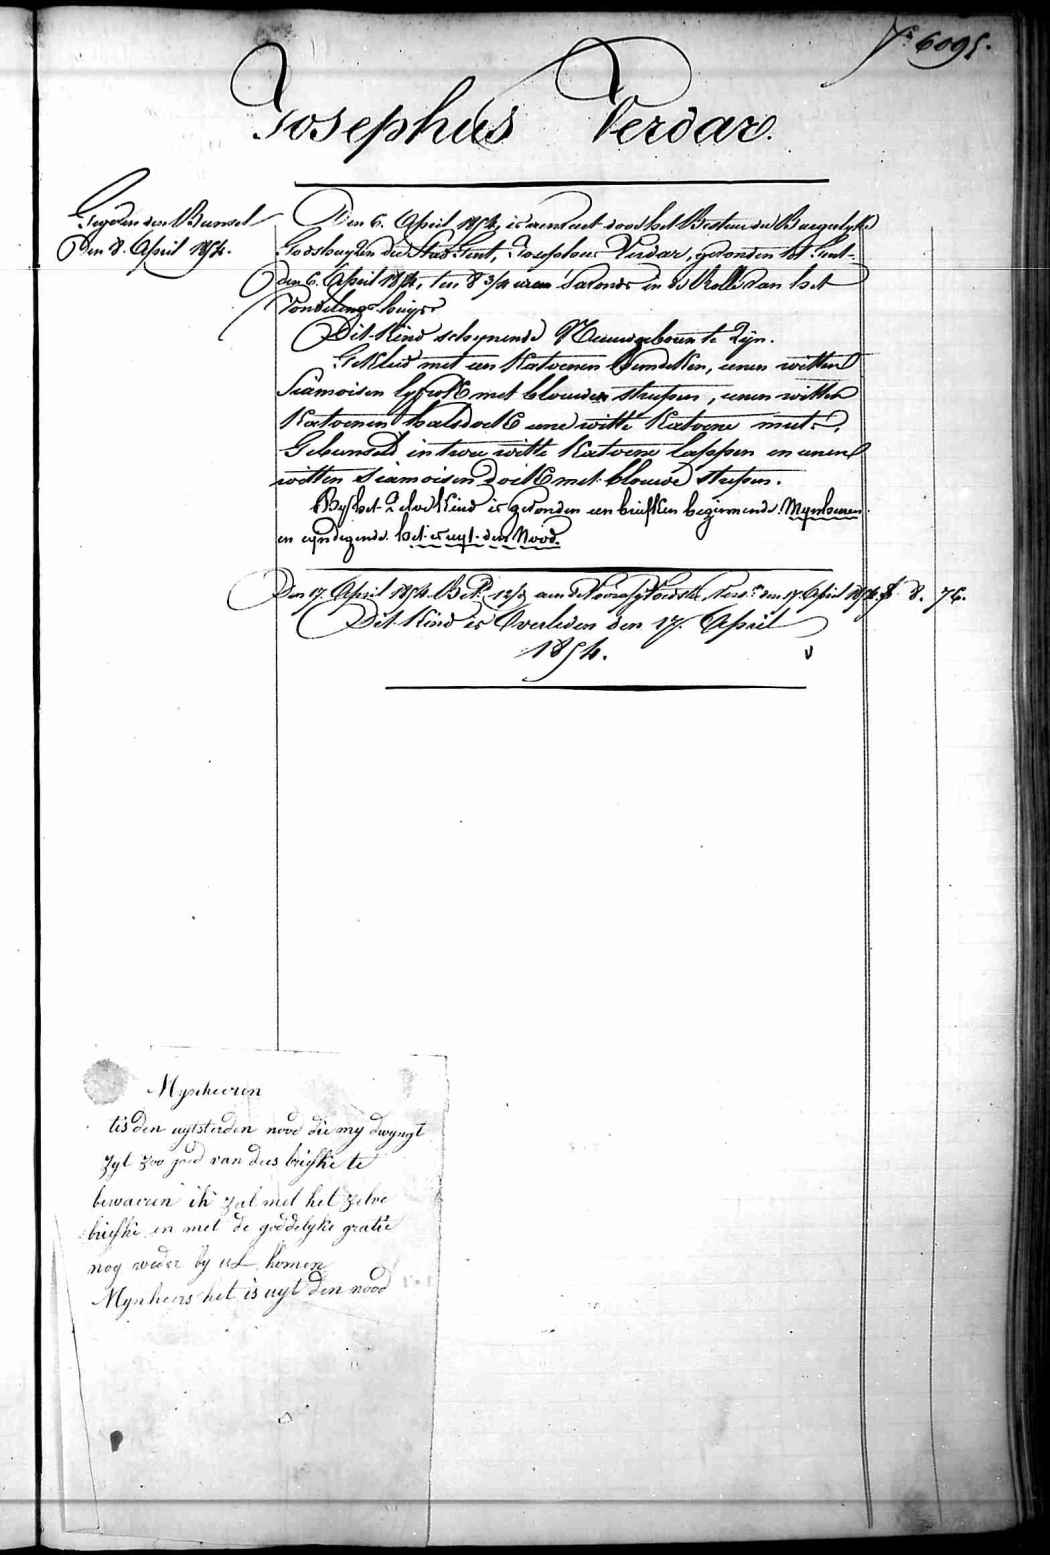 N.º 6095.
Josephus Verdar.
Gegeven den Bunsel
den 8. April 1854.
Den 6. April 1854, is aenveert door het Bestuer der Burgerlyke
Godshuyzen der Stad Gent, Josephus Verdar, gevonden tot Gent
den 6. April 1854, ten 8 3/4 uren 's avonds in de Rolle van het
Vondelinge-huys.
Dit Kind schynende Nieuwgeboren te zyn.
Gekleed met een Katoenen hemdeken, eenen witten
Siamoisen lyfrok met blouwen strepen, eenen witten
Katoenen halsdoek eene witte Katoene muts,
Gebunseld in twee witte Katoene lappen en eenen
witten Siamoisen doek met blouwe strepen.
By het zelve Kind is gevonden een briefken beginnende Mynheeren
en eyndegende het is uyt den Nood.
Den 17. April 1854. Bet. aen de Voedster den 17. April 1854 f 8. 76.
Dit Kind is Overleden den 17. April
1854.
Mynheeren
tis den uytsterden nood die my dwyngt
zyt zoo goed van dees briefke te
bewaeren ik zal met het zelve
briefke en met de goddelyke gratie
nog weder by ul. komen
Mynheers het is uyt den nood